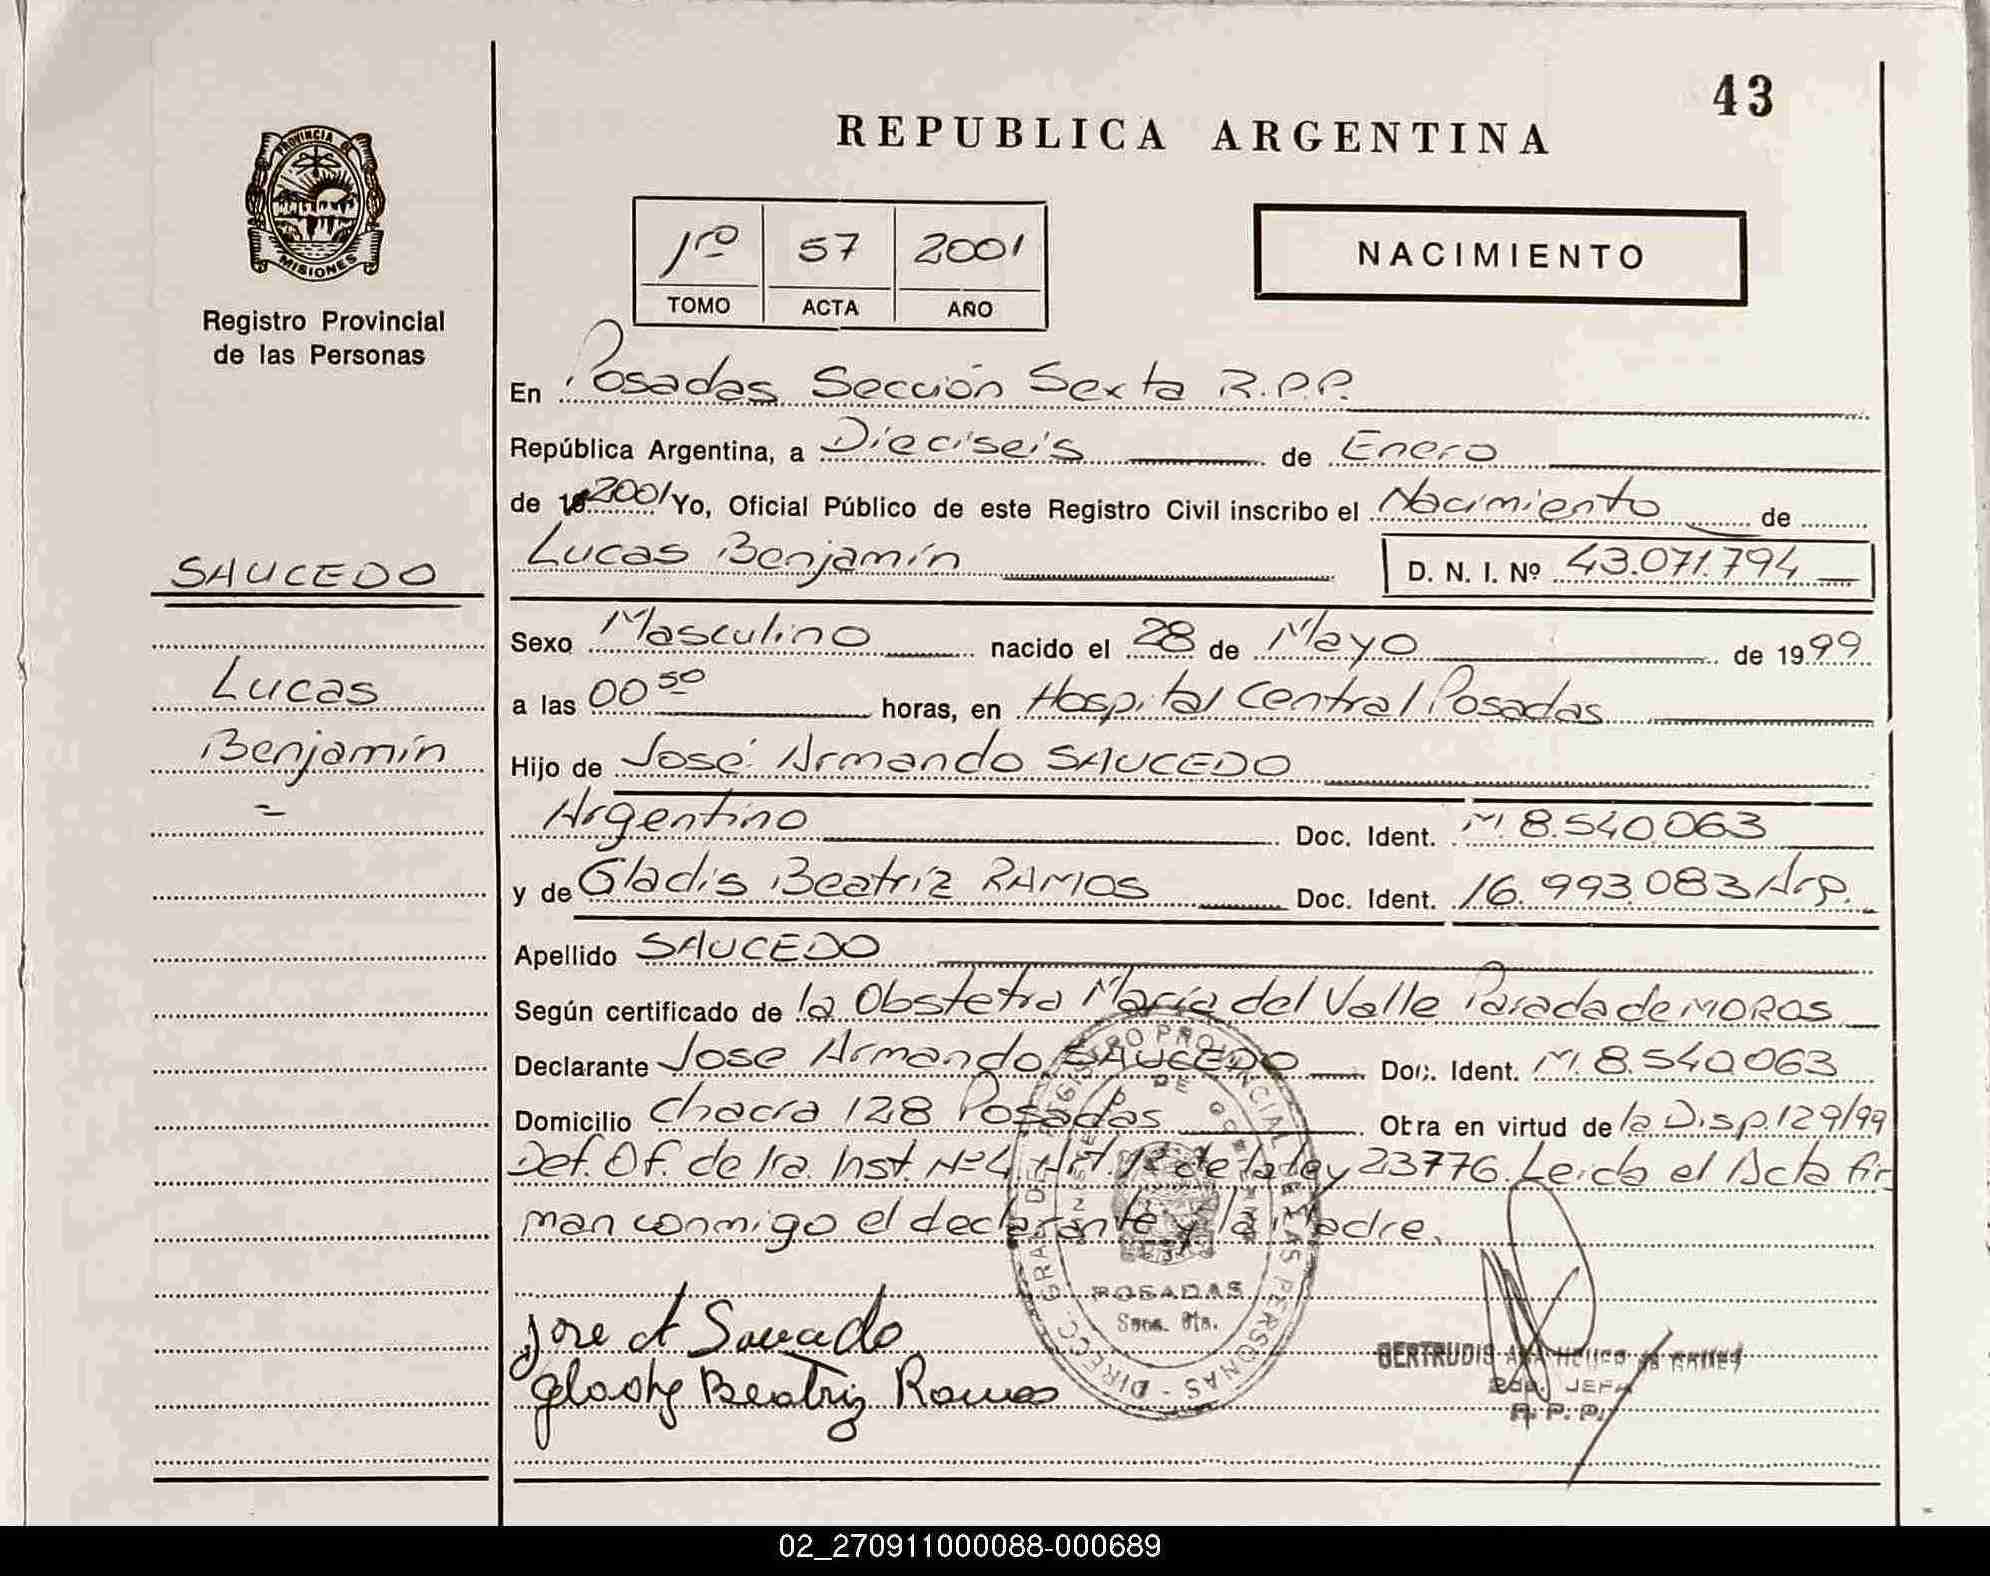 43
REPUBLICA ARGENTINA
PROVINCIA DE
MISIONES
Registro Provincial
de las Personas
1ro 57 2001
TOMO ACTA AÑO
NACIMIENTO
En Posadas Sección Sexta R.P.P.
República Argentina, a Dieciseis de Enero
de 2001 Yo, Oficial Público de este Registro Civil inscribo el Nacimiento de
Lucas Benjamín D. N. I. Nº 43.071.794
SAUCEDO
Lucas
Benjamín
Sexo Masculino nacido el 28 de Mayo de 1999
a las 00 50 horas, en Hospital Central Posadas
Hijo de José Armando SAUCEDO
Argentino Doc. Ident. M. 8.540.063
y de Gladis Beatríz RAMOS Doc. Ident. 16.993.083 Arg.
Apellido SAUCEDO
Según certificado de la Obstetra María del Valle Parada de MOROS
Declarante Jose Armando SAUCEDO Doc. Ident. M. 8.540.063
Domicilio Chacra 128 Posadas Otra en virtud de la Disp. 129/99
Def. Of. de 1ra. Inst. Nº 4 Art. 1º de la ley 23776. Leida el Acta fir
man conmigo el declarante y la Madre.
Jose A Saucedo
Gladys Beatriz Ramos
REGISTRO PROVINCIAL DE LAS PERSONAS - DIRECC. GRAL. DE
POSADAS
Secc. 6ta.
GERTRUDIS
JEFA
R. P. P.
02_270911000088-000689